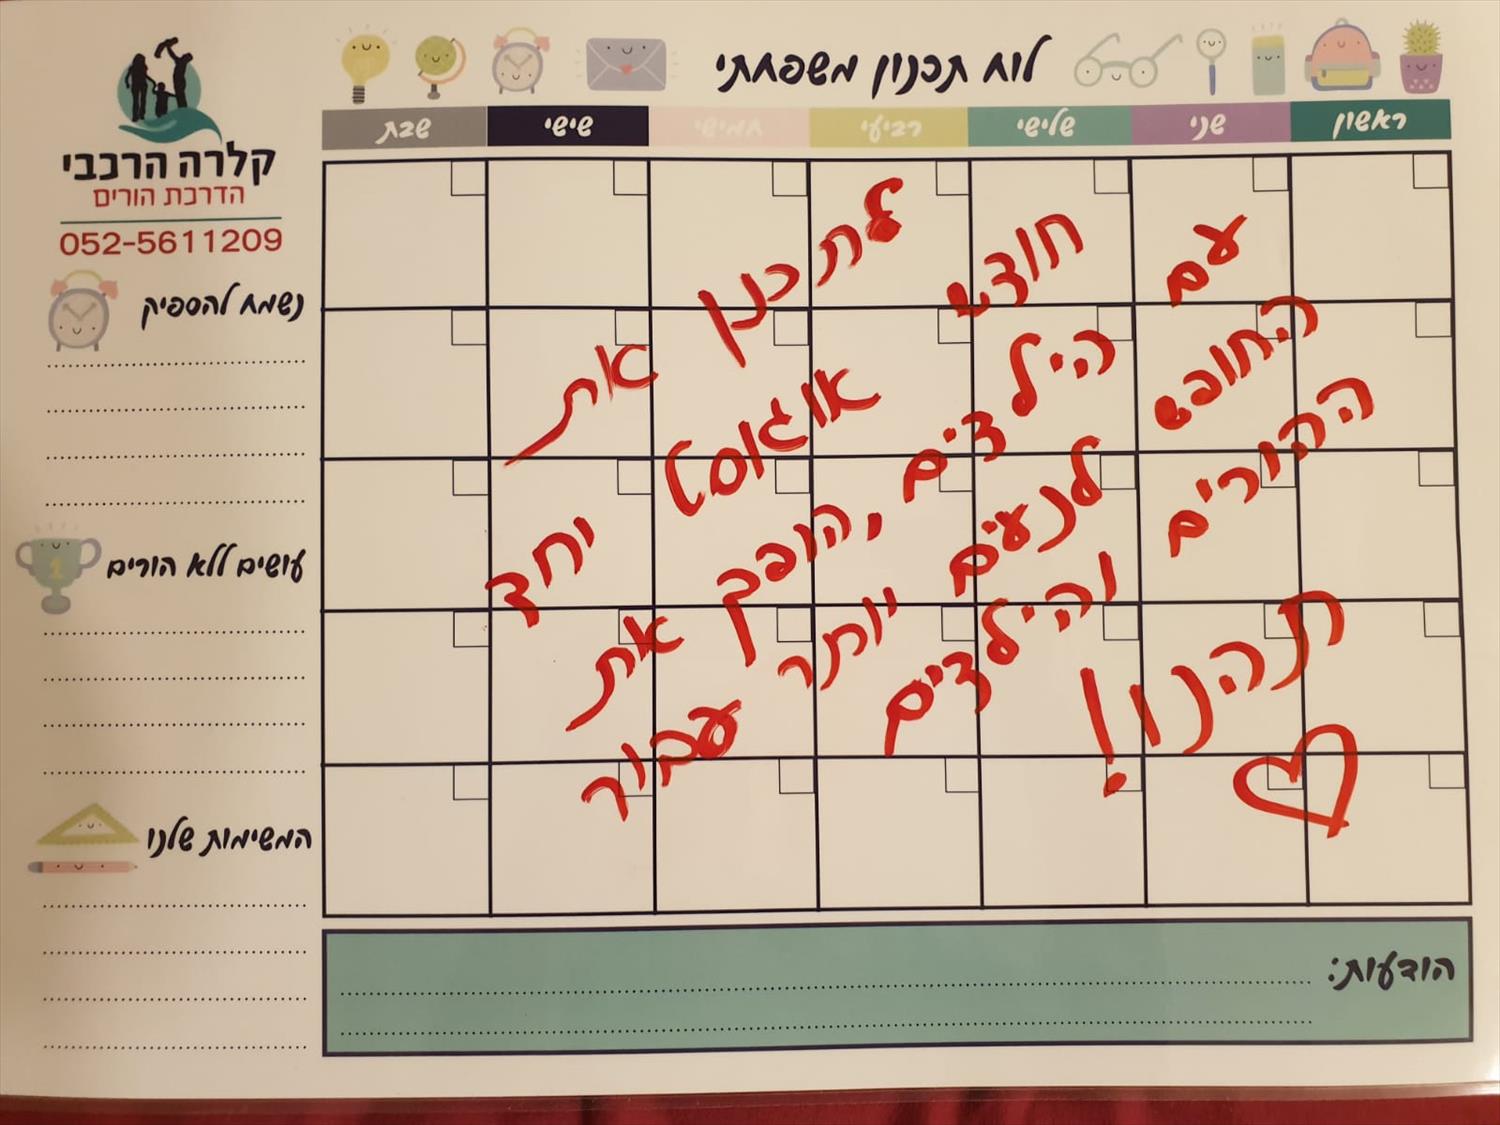 לוח תכנון משפחתי
ראשון שני שלישי רביעי חמישי שישי שבת
קלרה הרכבי
הדרכת הורים
052-5611209
נשמח להספיק
עושים ללא הורים
המשימות שלנו
לתכנן את
חודש אוגוסט יחד
עם הילדים, הופך את
החופש לנעים יותר עבור
ההורים והילדים
תהנו!
הודעות: